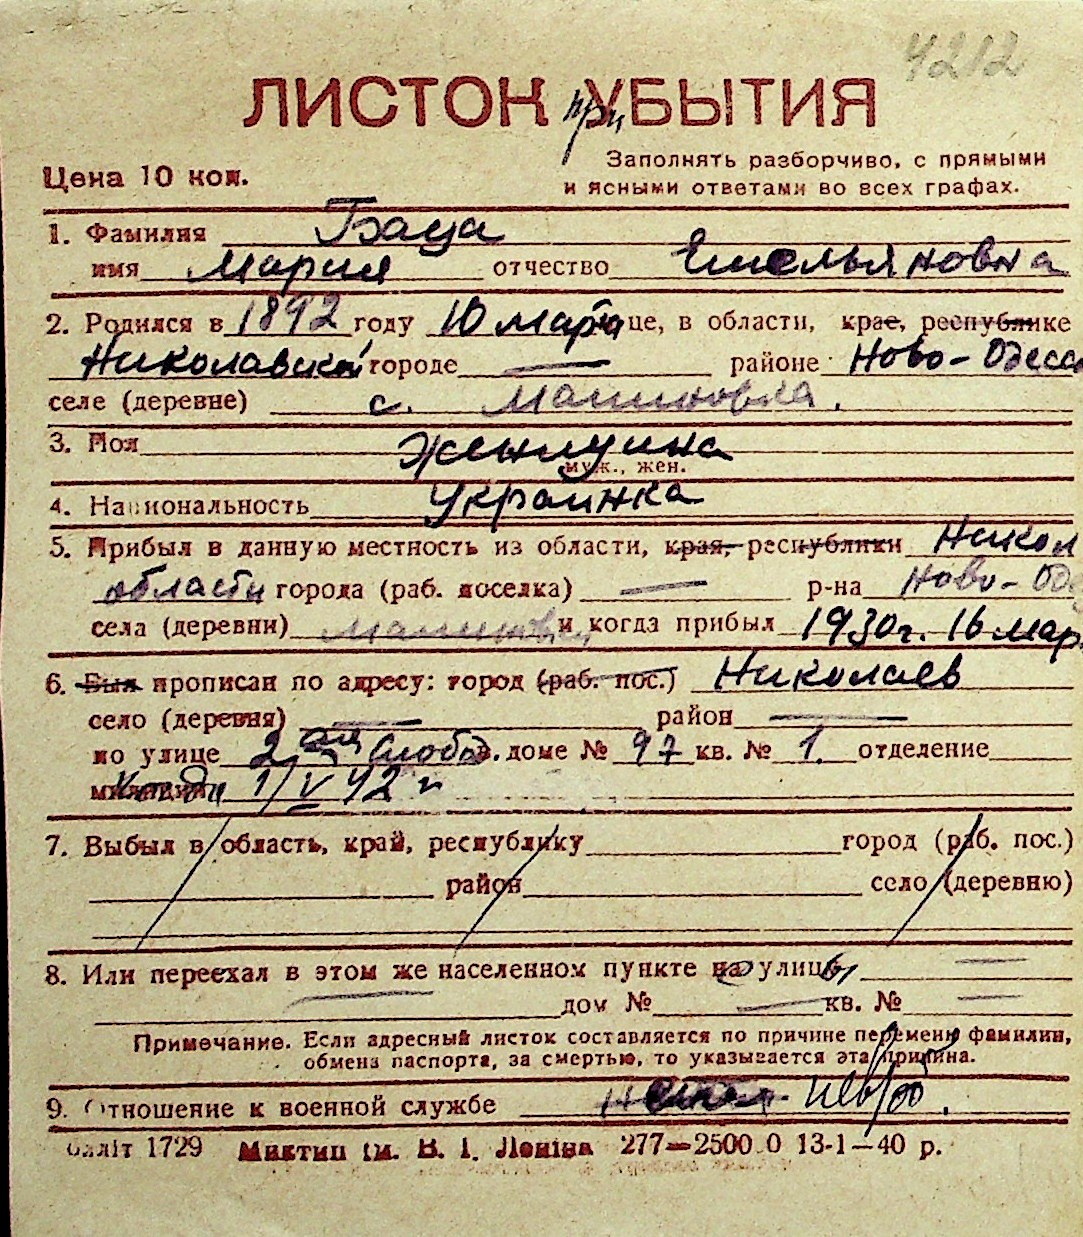 4212
ЛИСТОК при УБЫТИЯ
Цена 10 коп.
Заполнять разборчиво, с прямыми
и ясными ответами во всех графах.
1. Фамилия Баца
имя Мария отчество Емельяновна
2. Родился в 1892 году 10 марта це, в области, крае, республике
Николавской городе — районе Ново-Одесс
селе (деревне) с. Малиновка.
3. Пол Женщина
муж., жен.
4. Национальность Украинка
5. Прибыл в данную местность из области, края, республики Никол
области города (раб. поселка) — р-на Ново-Оде
села (деревни) и когда прибыл 1930г. 16 мар.
6. Был прописан по адресу: город (раб. пос.) Николаев
село (деревня) — район —
по улице 2ая Слобод. доме № 97 кв. № 1. отделение
милиции когда 1/V 42 г
7. Выбыл в область, край, республику город (раб. пос.)
район село (деревню)
8. Или переехал в этом же населенном пункте на улицу —
— дом № — кв. № —
Примечание. Если адресный листок составляется по причине перемены фамилии,
обмена паспорта, за смертью, то указывается эта причина.
9. Отношение к военной службе
1729 Миктип ім. В. І. Леніна 277—2500.0 13-1—40 р.